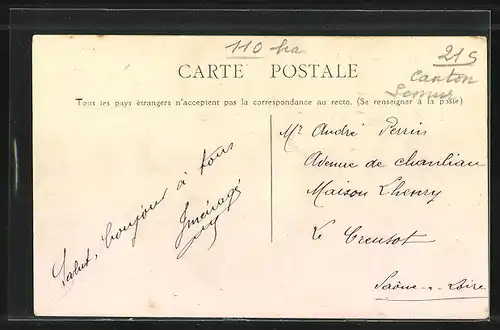 110 ha
215
Canton
CARTE POSTALE
Tous les pays étrangers n'acceptent pas la correspondance au recto. (Se renseigner à la poste)
Mr André Perrin
Avenue de chanliau
Maison Lhenry
Le Creusot
Saône-Loire
Salut, bonjour à tous